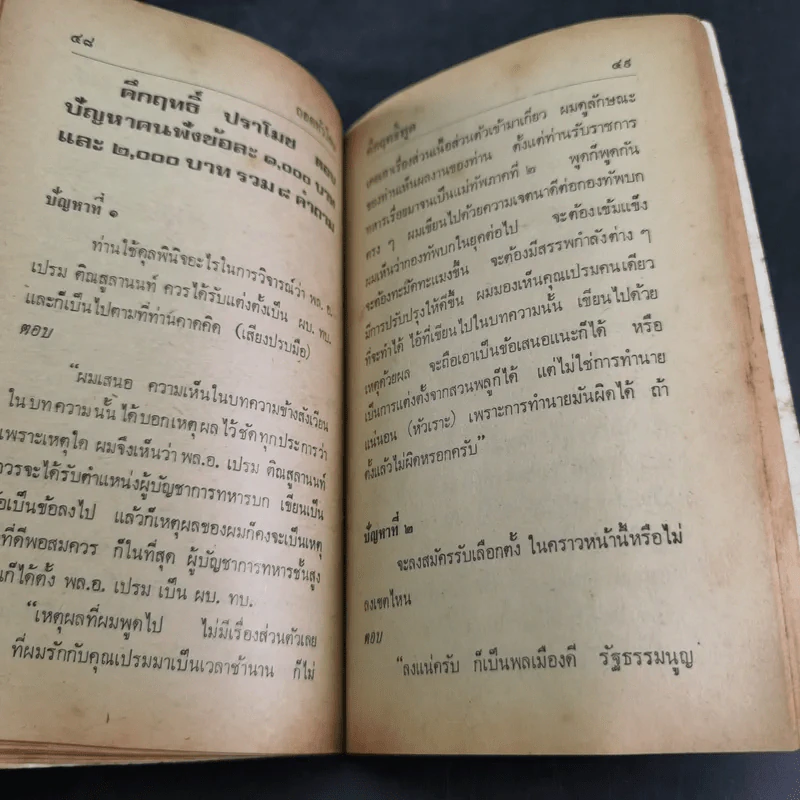 ๔๘
ถอดหัวโขน
คึกฤทธิ์ ปราโมช ตอบ
ปัญหาคนฟังข้อละ ๑,๐๐๐ บาท
และ ๒,๐๐๐ บาท รวม ๘ คำถาม
ปัญหาที่ ๑
ท่านใช้ดุลพินิจอะไรในการวิจารณ์ว่า พล. อ.
เปรม ติณสูลานนท์ ควรได้รับแต่งตั้งเป็น ผบ. ทบ.
และก็เป็นไปตามที่ท่านคาดคิด (เสียงปรบมือ)
ตอบ
“ผมเสนอ ความเห็นในบทความข้างสังเวียน
ในบทความนั้นได้บอกเหตุผลไว้ชัดทุกประการว่า
เพราะเหตุใด ผมจึงเห็นว่า พล.อ. เปรม ติณสูลานนท์
ควรจะได้รับตำแหน่งผู้บัญชาการทหารบก เขียนเป็น
ข้อเป็นข้อลงไป แล้วก็เหตุผลของผมก็คงจะเป็นเหตุ
ที่ดีพอสมควร ก็ในที่สุด ผู้บัญชาการทหารชั้นสูง
ก็ได้ตั้ง พล.อ. เปรม เป็น ผบ. ทบ.
“เหตุผลที่ผมพูดไป ไม่มีเรื่องส่วนตัวเลย
ที่ผมรักกับคุณเปรมมาเป็นเวลาช้านาน ก็ไม่
๔๙
คึกฤทธิ์พูด
เคยเอาเรื่องส่วนเนื้อส่วนตัวเข้ามาเกี่ยว ผมดูลักษณะ
ของท่านเห็นผลงานของท่าน ตั้งแต่ท่านรับราชการ
ทหารเรื่อยมาจนเป็นแม่ทัพภาคที่ ๒ พูดก็พูดกัน
ตรง ๆ ผมเขียนไปด้วยความเจตนาดีต่อกองทัพบก
ผมเห็นว่ากองทัพบกในยุคต่อไป จะต้องเข้มแข็ง
จะต้องทะมัดทะแมงขึ้น จะต้องมีสรรพกำลังต่าง ๆ
มีการปรับปรุงให้ดีขึ้น ผมมองเห็นคุณเปรมคนเดียว
ที่จะทำได้ ไอ้ที่เขียนไปในบทความนั้น เขียนไปด้วย
เหตุด้วยผล จะถือเอาเป็นข้อเสนอแนะก็ได้ หรือ
เป็นการแต่งตั้งจากสวนพลูก็ได้ แต่ไม่ใช่การทำนาย
แน่นอน (หัวเราะ) เพราะการทำนายมันผิดได้ ถ้า
ตั้งแล้วไม่ผิดหรอกครับ”
ปัญหาที่ ๒
จะลงสมัครรับเลือกตั้ง ในคราวหน้านี้หรือไม่
ลงเขตไหน
ตอบ
“ลงแน่ครับ ก็เป็นพลเมืองดี รัฐธรรมนูญ